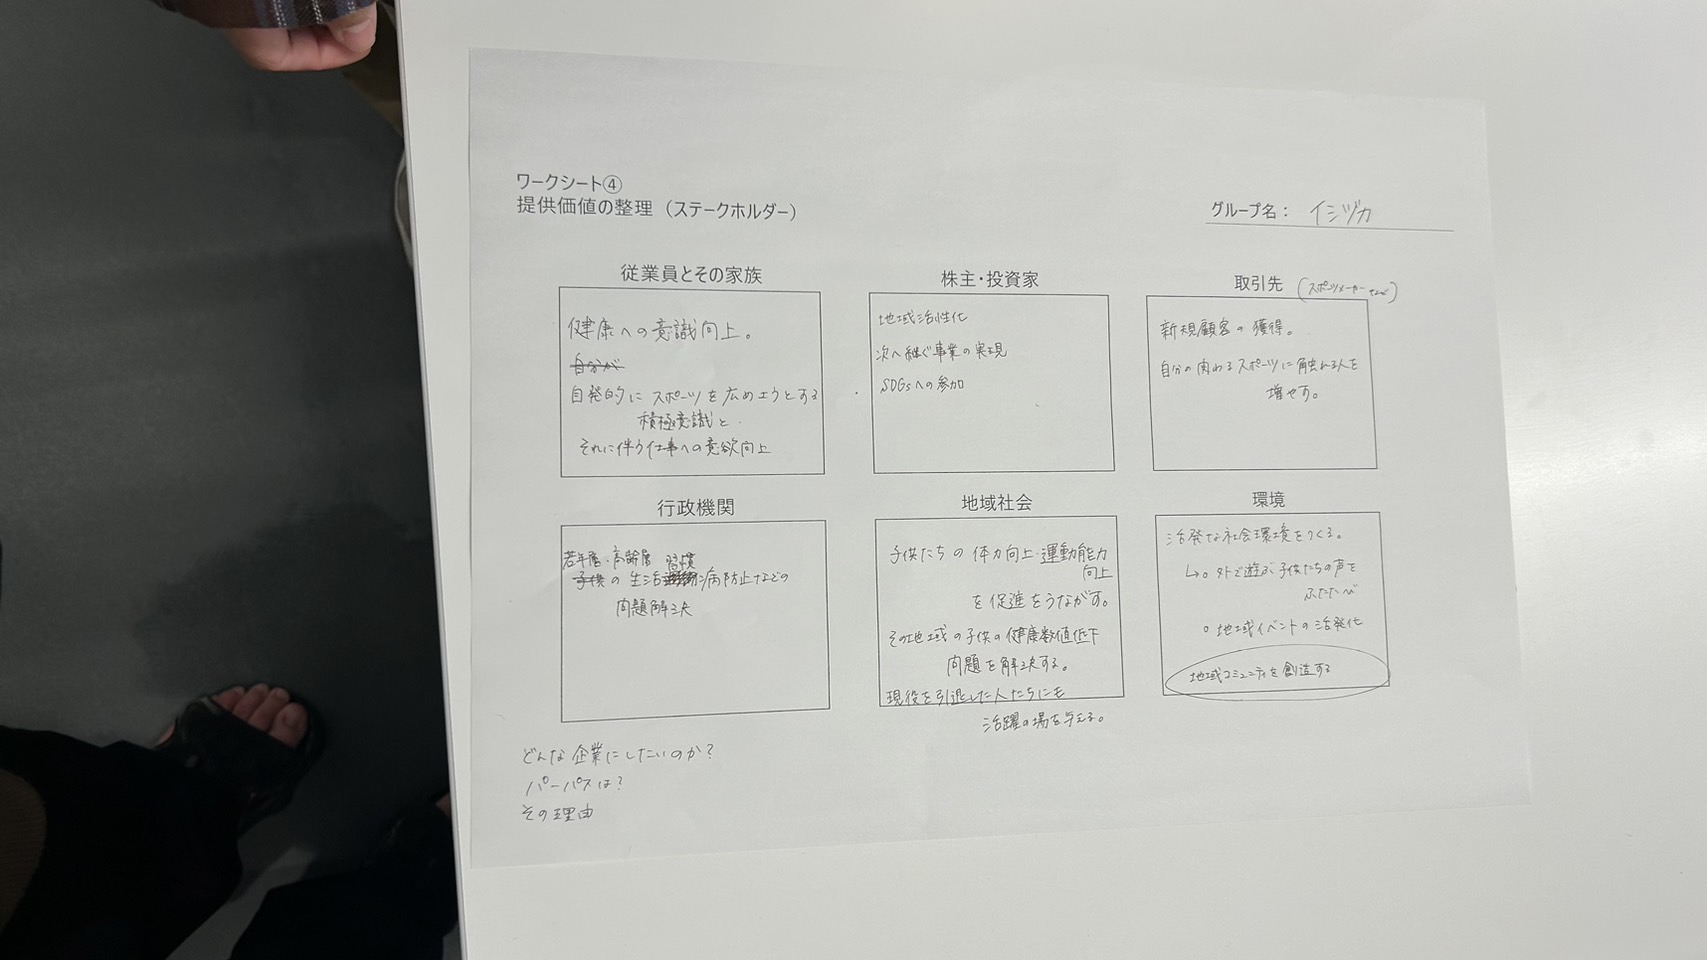 ワークシート④
提供価値の整理（ステークホルダー）
グループ名： イシヅカ
従業員とその家族
健康への意識向上。
自分が
自発的にスポーツを広めようとする
積極意識と
それに伴う仕事への意欲向上
株主・投資家
地域活性化
次へ継ぐ事業の実現
SDGsへの参加
取引先 (スポーツメーカーなど)
新規顧客の獲得。
自分の関わるスポーツに触れる人を
増やす。
行政機関
若年層・高齢層 習慣
子供の生活病防止などの
問題解決
地域社会
子供たちの体力向上・運動能力
向上
を促進をうながす。
その地域の子供の健康数値低下
問題を解決する。
現役を引退した人たちにも
活躍の場を与える。
環境
活発な社会環境をつくる。
↳○外で遊ぶ子供たちの声を
ふたたび
○地域イベントの活発化
地域コミュニティを創造する
どんな企業にしたいのか？
パーパスは？
その理由